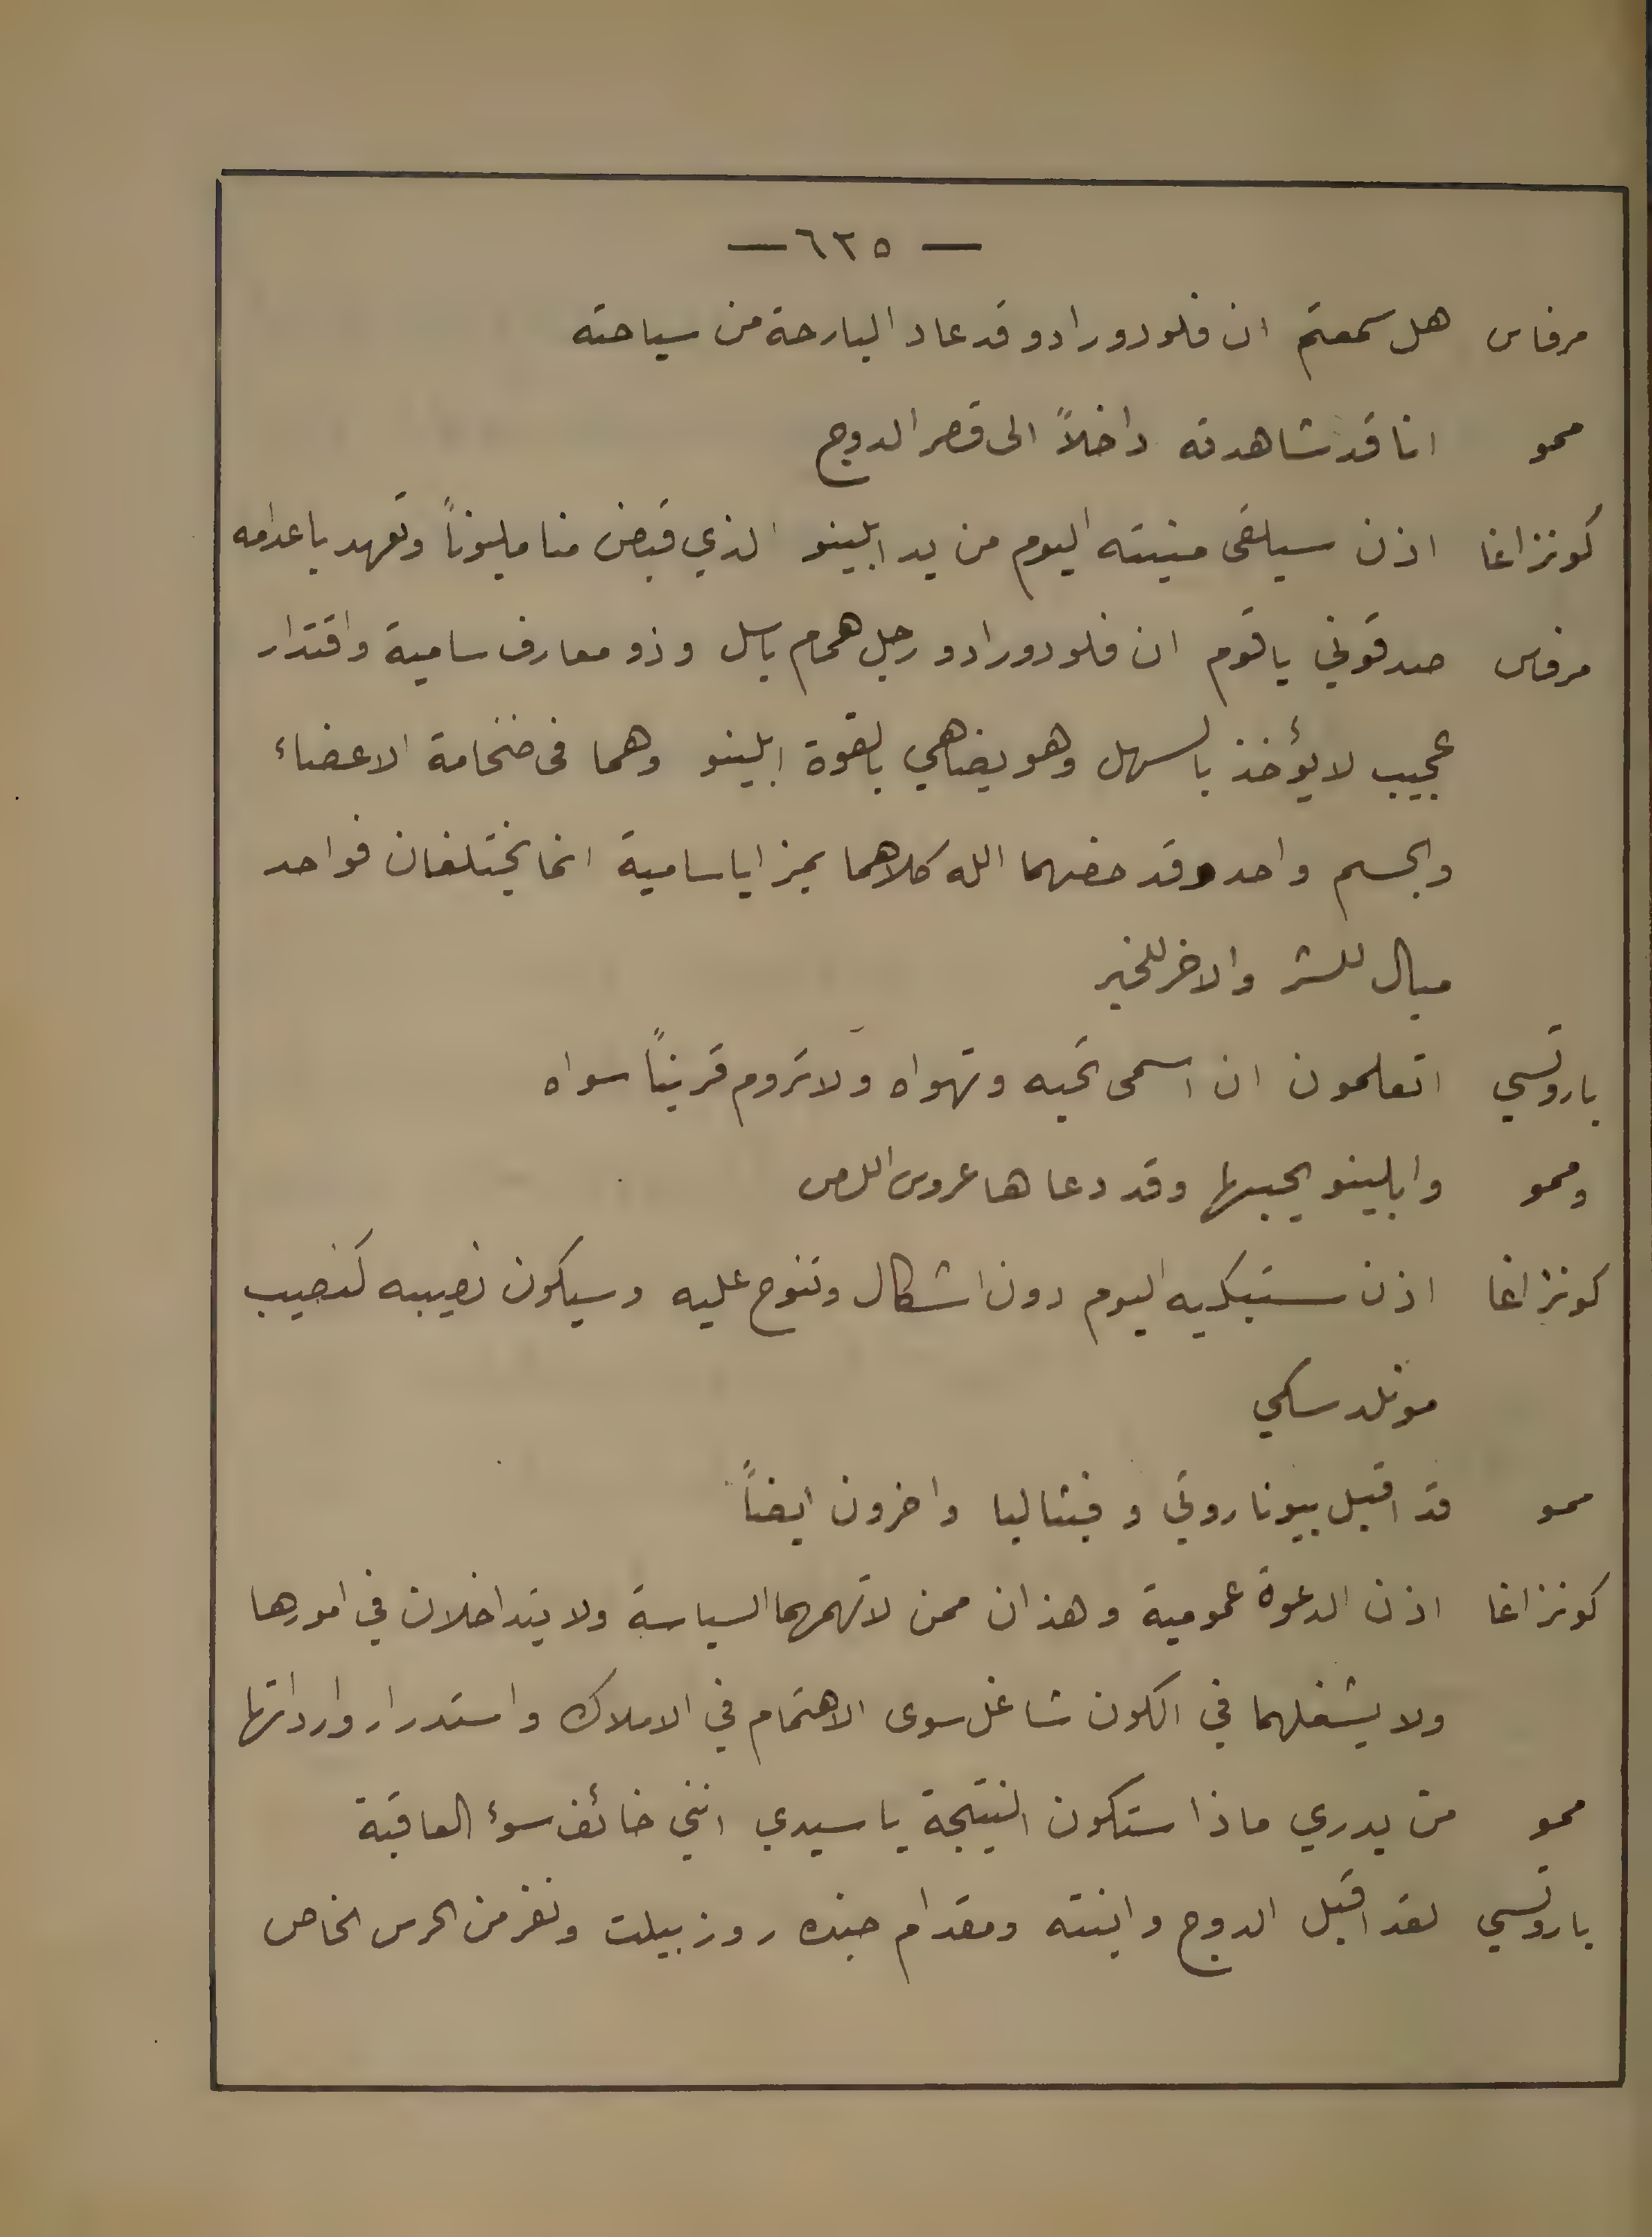 — ٦٢٥ —
مرفاس هل سمعتم ان فلودورادو قد عاد البارحة من سياحته
ممو انا قد شاهدته داخلاً الى قصر الدوج
كونزاغا اذن سيلقى منيته اليوم من يد ابلينو الذي قبض منا مليوناً وتعهد باعدامه
مرفاس صدقوني ياقوم ان فلودورادو رجل همام باسل وذو معارف سامية واقتدار
عجيب لا يؤخذ بالسهل وهو يضاهي بالقوة ابلينو وهما فى ضخامة الاعضاء
والجسم واحد وقد خصهما الله كلاهما بمزايا سامية انما يختلفان فواحد
ميال للشر والاخر للخير
باروتسي اتعلمون ان اسمى تحبه وتهواه ولا تروم قريناً سواه
وممو وابلينو يحبها وقد دعاها عروس اللص
كونزاغا اذن ستبكيه اليوم دون اشكال وتنوح عليه وسيكون نصيبه كنصيب
مونلدسكي
ممو قد اقبل بيوناروتي و فيتاليا واخرون ايضاً
كونزاغا اذن الدعوة عمومية وهذان ممن لا تهمهما السياسة ولا يتداخلان في امورها
ولا يشغلهما في الكون شاغل سوى الاهتمام في الاملاك واستدرار وارداتها
ممو من يدري ماذا ستكون النتيجة ياسيدي انني خائف سوء العاقبة
باروتسي لقد اقبل الدوج وابنته ومقدام جنده روزبيلت ونفر من الحرس الخاص